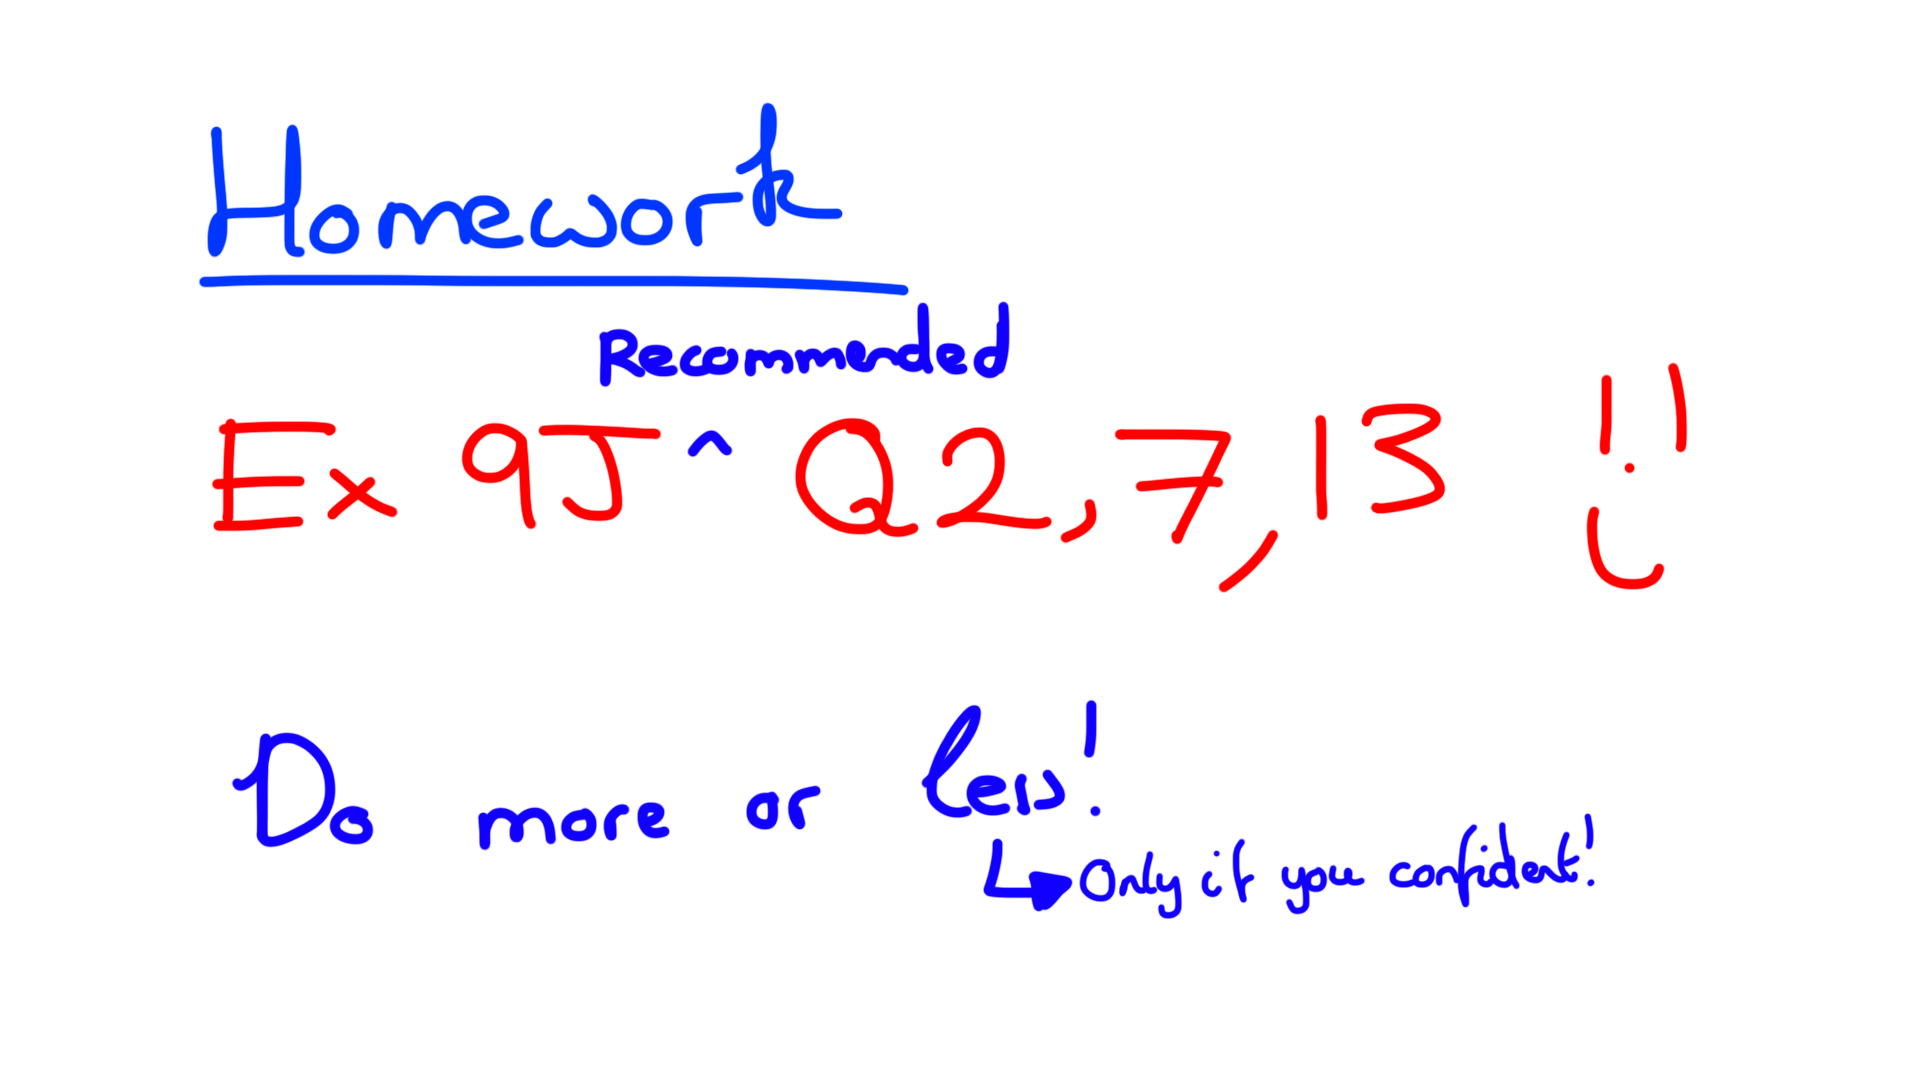 Homework
Recommended
Ex 9J ^ Q2, 7, 13
Do more or less!
Only if you confident!